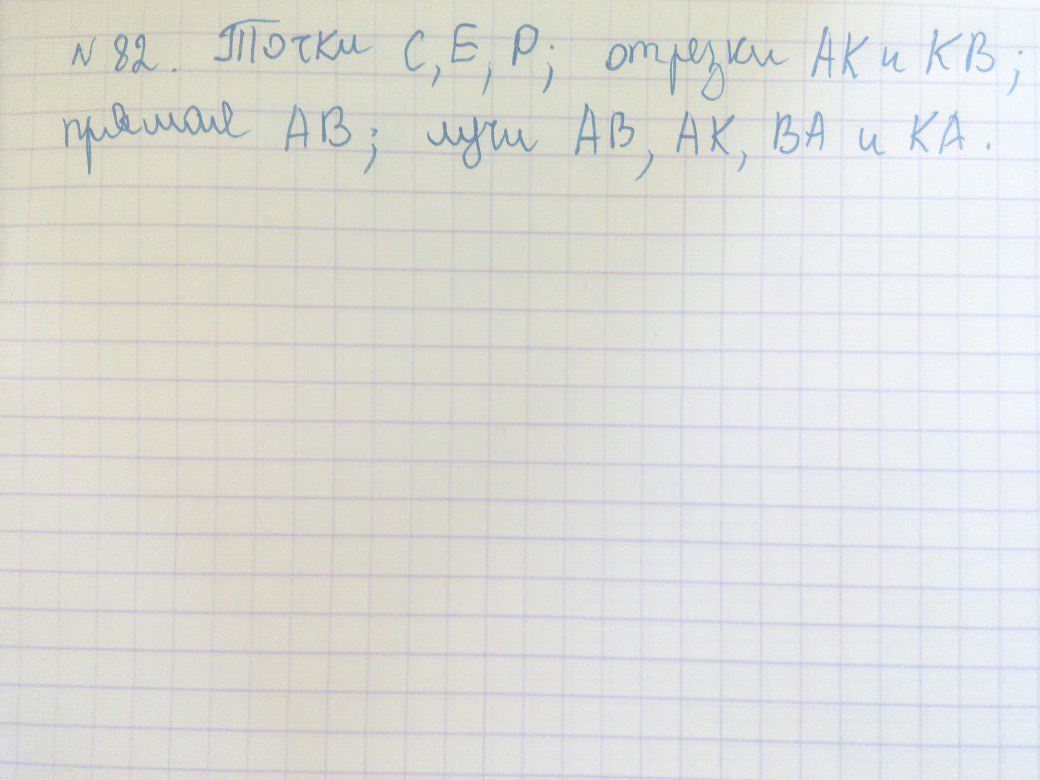 N 82. Точки C, E, P; отрезки AK и KB;
прямая AB; лучи AB, AK, BA и KA.